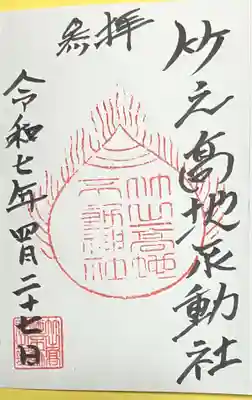 竹之高地不動社
参拝
竹之高地
不動神社
令和七年四月二十七日